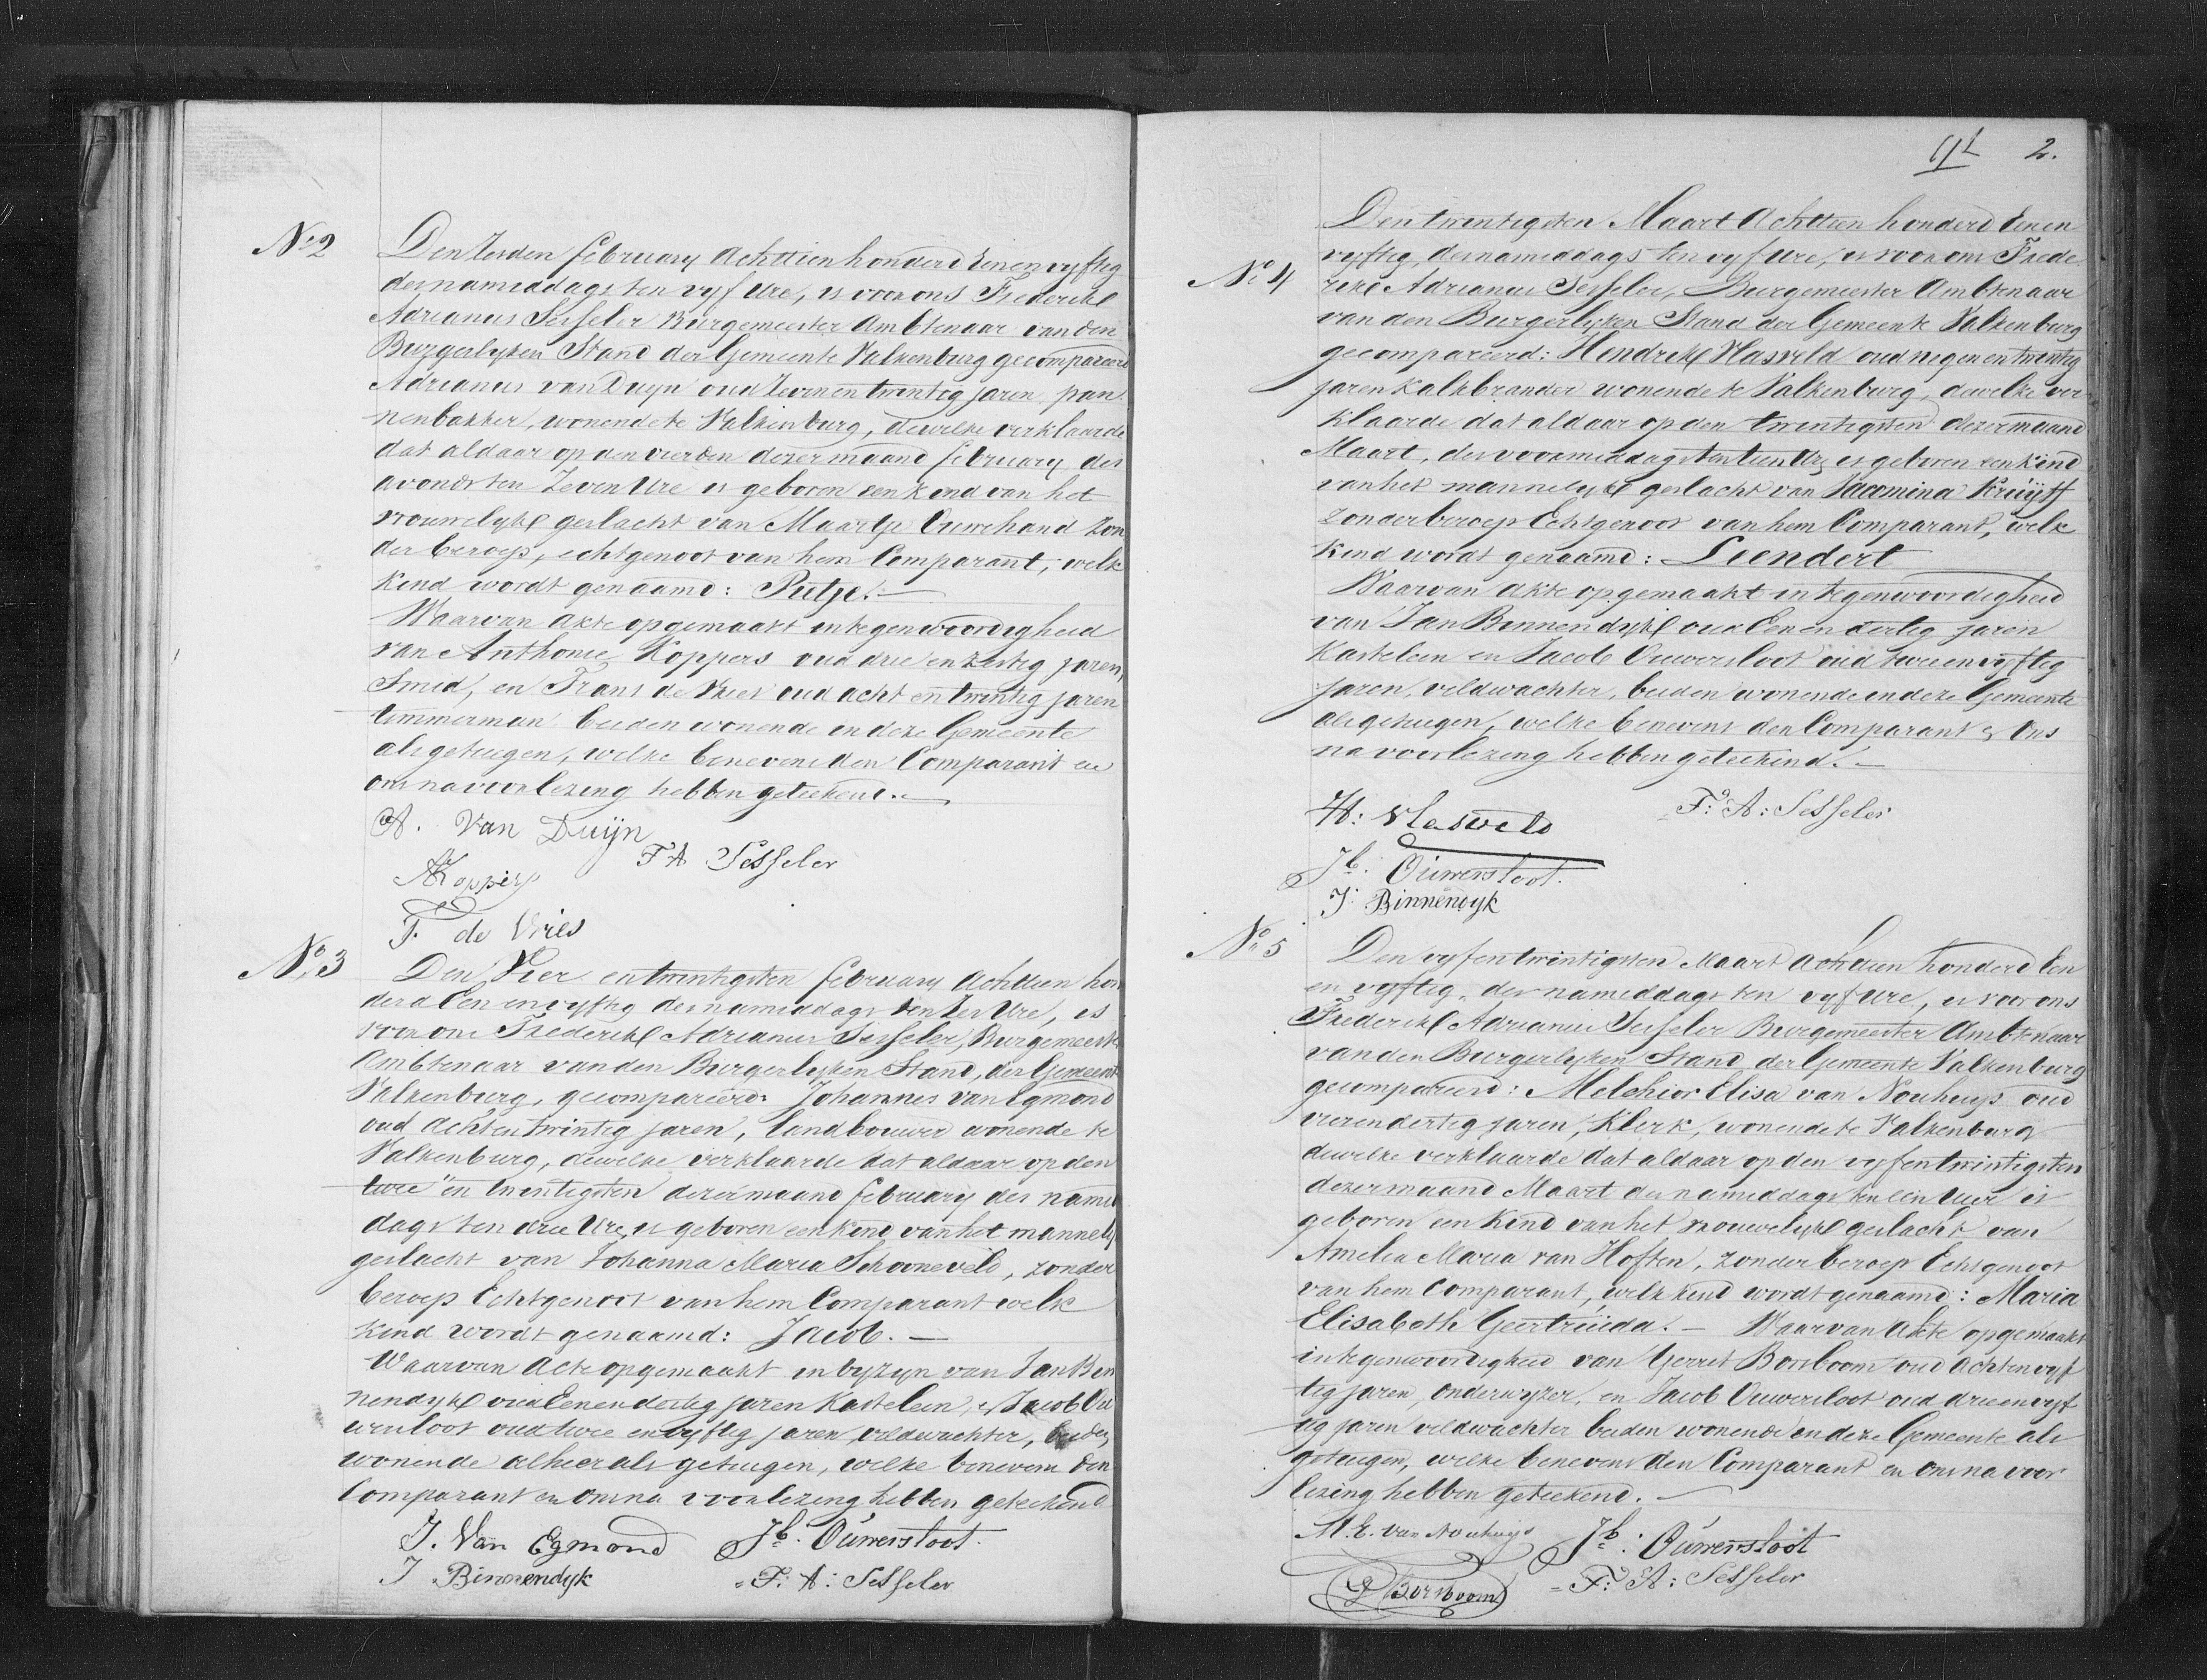 No 2
Den Zesden February Achttien honderd Een en vyftig
des namiddags ten vyf Ure, is voor ons Frederik
Adrianus Sesseler Burgemeester Ambtenaar van den
Burgerlyken Stand der Gemeente Valkenburg gecompareerd
Adrianus van Duyn oud Zeven en twintig jaren, pan
nenbakker, wonende te Valkenburg, dewelke verklaarde
dat aldaar op den vierden dezer maand February des
avonds ten Zeven Ure is geboren een kind van het
vrouwelyk geslacht van Maartje Ouwehand Zon
der beroep, echtgenoot van hem Comparant, welk
kind wordt genaamd: Pietje.
Waarvan akte opgemaakt in tegenwoordigheid
van Anthonie Koppers oud drie en zestig jaren,
Smid, en Frans de Vries oud acht en twintig jaren
timmerman beiden wonende in deze Gemeente
als getuigen, welke benevens den Comparant en
ons na voorlezing hebben geteekend.
A. Van Duijn
F A Sesseler
A Koppers
F. de Vries
No 3
Den Vier en twintigsten February Achttien hon
derd Een en vyftig des namiddags ten Zes Ure, is
voor ons Frederik Adrianus Sesseler, Burgemeester
Ambtenaar van den Burgerlyken Stand, der Gemeente
Valkenburg, gecompareerd: Johannes van Egmond
oud Acht en twintig jaren, landbouwer wonende te
Valkenburg, dewelke verklaarde dat aldaar op den
twee en twintigsten dezer maand February des namid
dags ten drie Ure, is geboren een kind van het mannely
geslacht van Johanna Maria Schooneveld, zonder
beroep Echtgenoot van hem Comparant welk
kind wordt genaamd: Jacob.
Waarvan Acte opgemaakt in byzyn van Jan Bin
nendyk oud Een en dertig jaren Kastelein, & Jacob Ou
wersloot oud twee en vyftig jaren veldwachter, beiden
wonende alhier als getuigen, welke benevens den
Comparant en ons na voorlezing hebben geteekend
J. Van Egmond
Jb. Ouwersloot.
J Binnendyk
F. A: Sesseler
2.
Den twintigsten Maart Achttien honderd Een en
vyftig, des namiddags ten vyf Ure, is voor ons Frede
No 4
rik Adrianus Sesseler, Burgemeester Ambtenaar
van den Burgerlyken Stand der Gemeente Valkenburg
gecompareerd: Hendrik Vlasveld oud negen en twintig
jaren Kalkbrander wonende te Valkenburg, dewelke ver
klaarde dat aldaar op den twintigsten dezer maand
Maart, des voormiddags ten tien Ure is geboren een kind
van het mannelyk geslacht van Jacomina Kruijff
zonder beroep Echtgenoot van hem Comparant, welk
kind wordt genaamd: Leendert
Waarvan akte opgemaakt in tegenwoordigheid
van Jan Binnendyk oud Een en dertig jaren
Kastelein en Jacob Ouwersloot oud twee en vyftig
jaren, veldwachter, beiden wonende in deze Gemeente
als getuigen, welke benevens den Comparant & Ons
na voorlezing hebben geteekend.
H: Vlasveld
F: A: Sesseler
Jb: Ouwersloot.
J. Binnendyk
No 5
Den vyf en twintigsten Maart Achttien honderd Een
en vyftig, des namiddags ten vyf Ure, is voor ons
Frederik Adrianus Sesseler Burgemeester Ambtenaar
van den Burgerlyken Stand der Gemeente Valkenburg
gecompareerd: Melchior Elisa van Nouhuys oud
vier en dertig jaren, Klerk, wonende te Valkenburg
dewelke verklaarde dat aldaar op den vyf en twintigsten
dezer maand Maart des namiddags ten een Uur is
geboren een Kind van het vrouwelyk geslacht van
Amelia Maria van Hoften, zonder beroep Echtgenoot
van hem Comparant, welk kind wordt genaamd: Maria
Elisabeth Geertruida. Waarvan Akte opgemaakt
in tegenwoordigheid van Gerrit Borsboom oud acht en vyf
tig jaren, Onderwyzer, en Jacob Ouwersloot oud drie en vyf
tig jaren veldwachter beiden wonende in deze Gemeente als
getuigen, welke benevens den Comparant en ons na voor
lezing hebben geteekend.
M. E. van Nouhuijs
Jb: Ouwersloot
G Borsboom
F: A: Sesseler